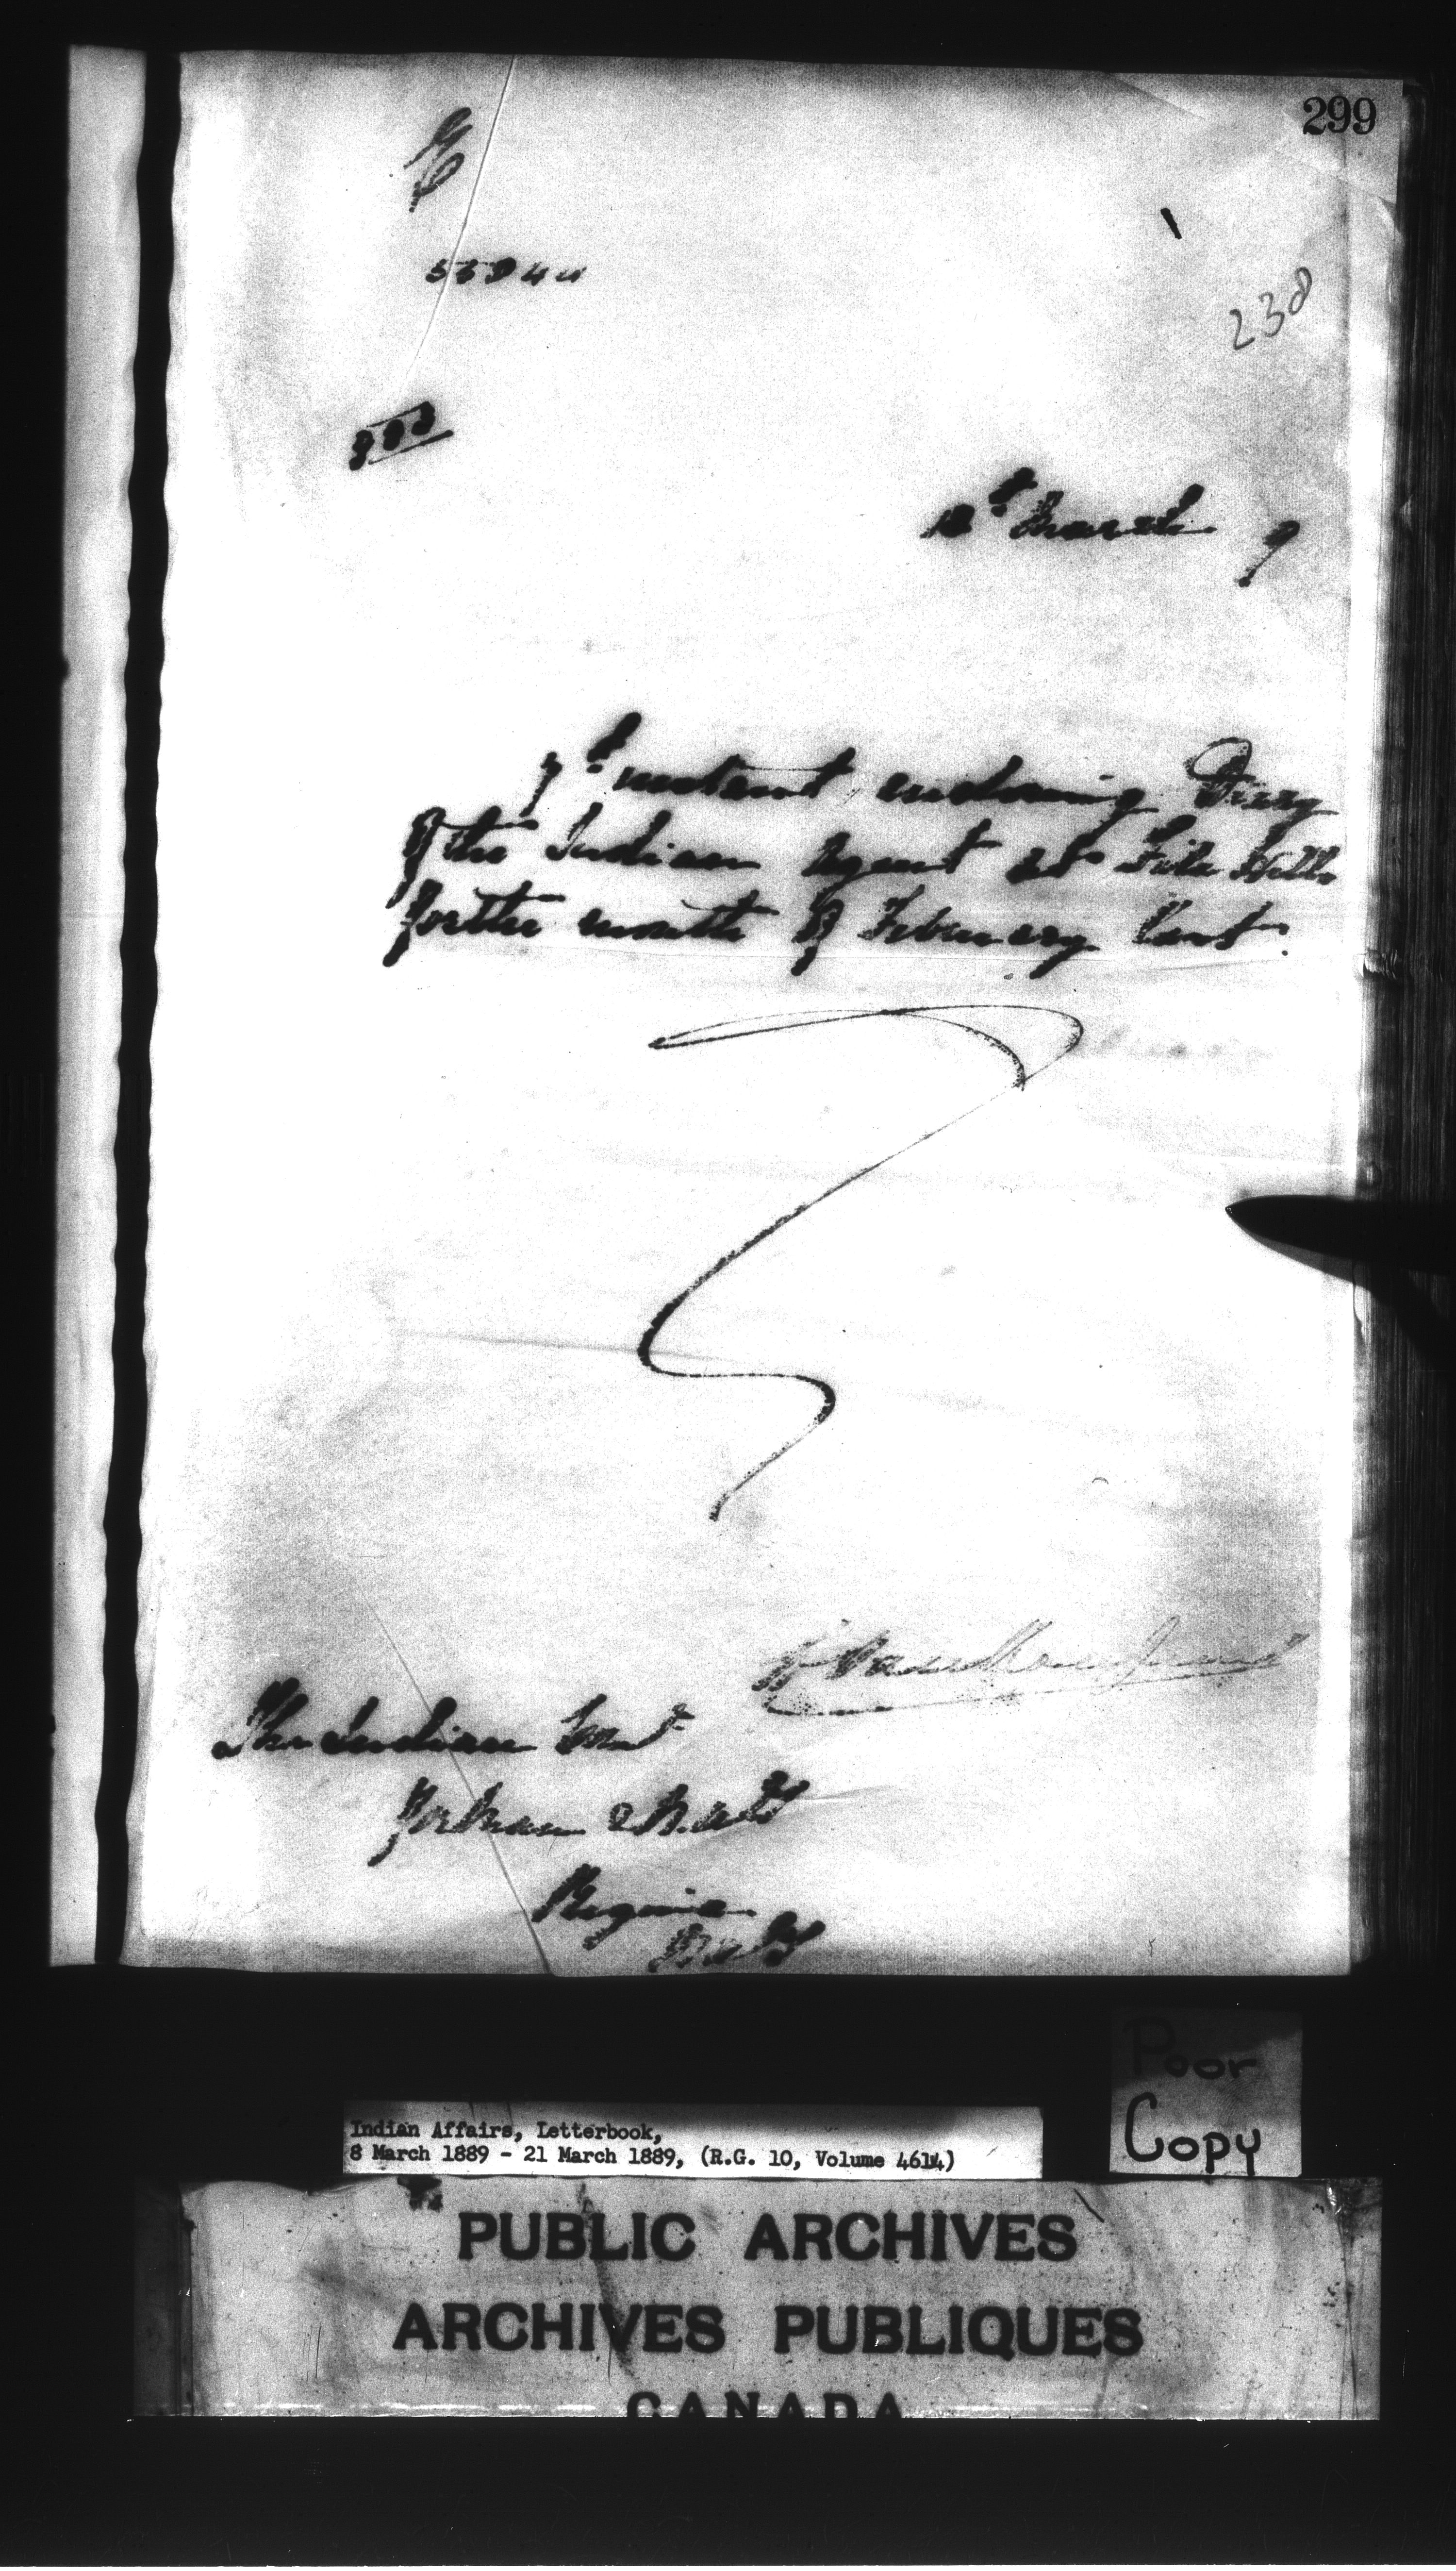 299
238
March 9
7th instant enclosing Diary
of the Indian Agent at File Hills
for the month of February last.
The Indian Comr
for Man & N.W.T
Regina
N.W.T
Poor
Copy
Indian Affairs, Letterbook,
8 March 1889 - 21 March 1889, (R.G. 10, Volume 4614)
PUBLIC ARCHIVES
ARCHIVES PUBLIQUES
CANADA